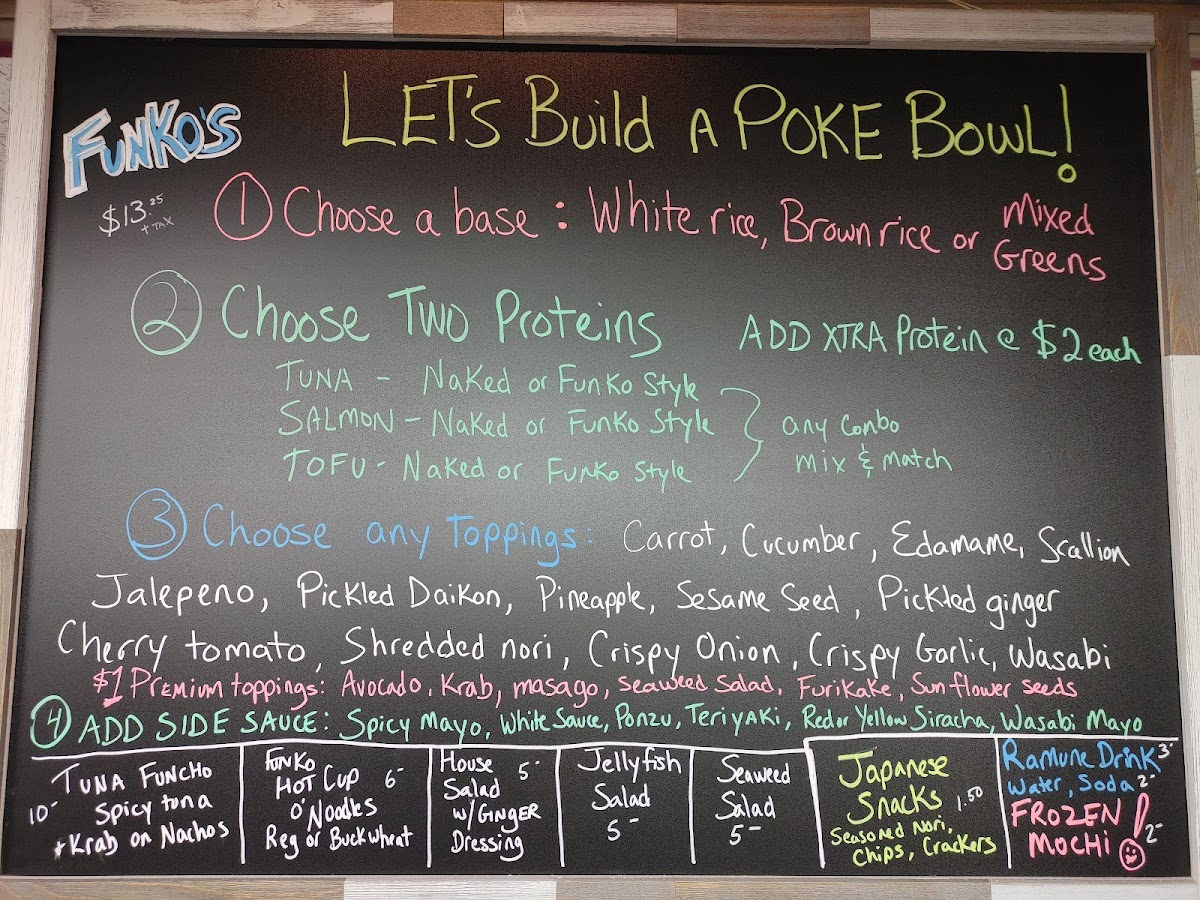 FUNKO'S
LET'S Build A POKE BOWL!
$13.25
+TAX
1 Choose a base: White rice, Brown rice or Mixed
Greens
2 Choose TWO Proteins
ADD XTRA Protein @ $2 each
TUNA - Naked or Funko Style
SALMON - Naked or Funko Style
TOFU - Naked or Funko Style
any Combo
Mix & Match
3 Choose any Toppings: Carrot, Cucumber, Edamame, Scallion
Jalepeno, Pickled Daikon, Pineapple, Sesame Seed, Pickled ginger
Cherry tomato, Shredded nori, Crispy Onion, Crispy Garlic, Wasabi
$1 Premium toppings: Avocado, Krab, masago, seaweed salad, Furikake, Sunflower seeds
4 ADD SIDE SAUCE: Spicy Mayo, White Sauce, Ponzu, Teriyaki, Red or Yellow Siracha, Wasabi Mayo
TUNA FUNCHO
10- Spicy tuna
+ Krab on Nachos
Funko
HOT CUP 6-
O' Noodles
Reg or Buckwheat
House 5-
Salad
w/ GINGER
Dressing
Jellyfish
Salad
5-
Seaweed
Salad
5-
Japanese
Snacks 1.50
Seasoned nori,
Chips, Crackers
Ramune Drink 3-
Water, Soda 2-
FROZEN
MOCHI! 2-